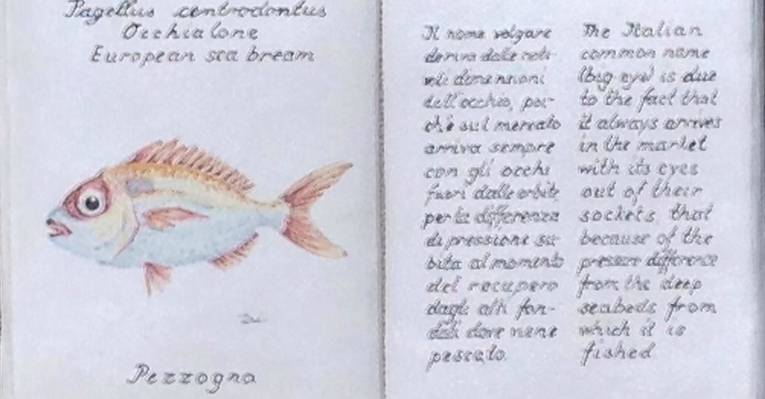 Pagellus centrodontus
Occhialone
European sea bream
Pezzogna
Il nome volgare
deriva dalle note-
voli dimensioni
dell'occhio, poi-
chè sul mercato
arriva sempre
con gli occhi
fuori dalle orbite
per la differenza
di pressione su-
bita al momento
del recupero
dagli alti fon-
dali dove viene
pescato.
The Italian
common name
(big eye) is due
to the fact that
it always arrives
in the market
with its eyes
out of their
sockets that
because of the
pressure difference
from the deep
seabeds from
which it is
fished